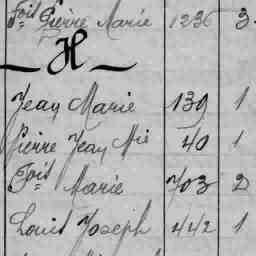 Fois Pierre Marie 1236 3
H
Jean Marie 139 1
Pierre Jean Mie 40 1
Fois Marie 703 2
Louis Joseph 442 1